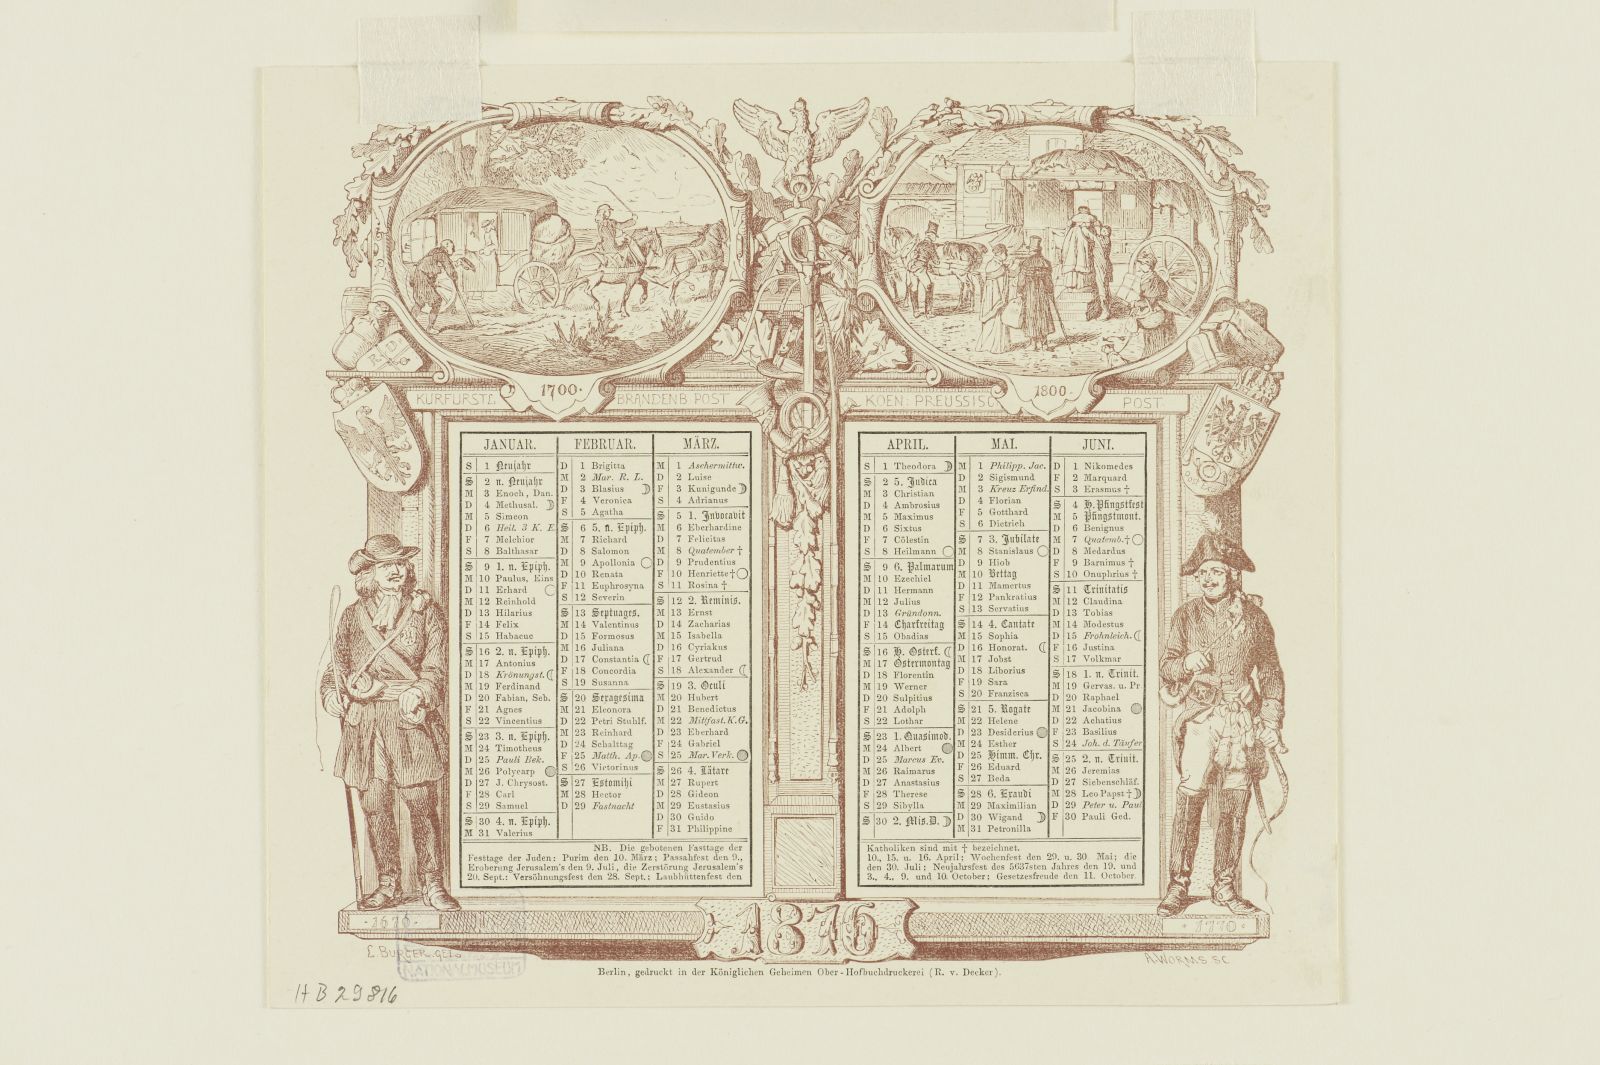 R D
1700.
1800.
KURFÜRSTL. BRANDENB POST
KOEN. PREUSSISC POST.
JANUAR.
S 1 Neujahr
S 2 n. Neujahr
M 3 Enoch, Dan.
D 4 Methusal.
M 5 Simeon
D 6 Heil. 3 K. E.
F 7 Melchior
S 8 Balthasar
S 9 1. n. Epiph.
M 10 Paulus, Eins
D 11 Erhard
M 12 Reinhold
D 13 Hilarius
F 14 Felix
S 15 Habacuc
S 16 2. n. Epiph.
M 17 Antonius
D 18 Krönungst.
M 19 Ferdinand
D 20 Fabian, Seb.
F 21 Agnes
S 22 Vincentius
S 23 3. n. Epiph.
M 24 Timotheus
D 25 Pauli Bek.
M 26 Polycarp
D 27 J. Chrysost.
F 28 Carl
S 29 Samuel
S 30 4. n. Epiph.
M 31 Valerius
FEBRUAR.
D 1 Brigitta
M 2 Mar. R. L.
D 3 Blasius
F 4 Veronica
S 5 Agatha
S 6 5. n. Epiph.
M 7 Richard
D 8 Salomon
M 9 Apollonia
D 10 Renata
F 11 Euphrosyna
S 12 Severin
S 13 Septuages.
M 14 Valentinus
D 15 Formosus
M 16 Juliana
D 17 Constantia
F 18 Concordia
S 19 Susanna
S 20 Sexagesima
M 21 Eleonora
D 22 Petri Stuhlf.
M 23 Reinhard
D 24 Schalttag
F 25 Matth. Ap.
S 26 Victorinus
S 27 Estomihi
M 28 Hector
D 29 Fastnacht
MÄRZ.
M 1 Aschermittw.
D 2 Luise
F 3 Kunigunde
S 4 Adrianus
S 5 1. Invocavit
M 6 Eberhardine
D 7 Felicitas
M 8 Quatember †
D 9 Prudentius
F 10 Henriette †
S 11 Rosina †
S 12 2. Reminis.
M 13 Ernst
D 14 Zacharias
M 15 Isabella
D 16 Cyriakus
F 17 Gertrud
S 18 Alexander
S 19 3. Oculi
M 20 Hubert
D 21 Benedictus
M 22 Mittfast. K.G.
D 23 Eberhard
F 24 Gabriel
S 25 Mar. Verk.
S 26 4. Lätare
M 27 Rupert
D 28 Gideon
M 29 Eustasius
D 30 Guido
F 31 Philippine
NB. Die gebotenen Fasttage der
Festtage der Juden: Purim den 10. März; Passahfest den 9.,
Eroberung Jerusalem's den 9. Juli, die Zerstörung Jerusalem's
20. Sept.: Versöhnungsfest den 28. Sept.; Laubhüttenfest den
APRIL.
S 1 Theodora
S 2 5. Judica
M 3 Christian
D 4 Ambrosius
M 5 Maximus
D 6 Sixtus
F 7 Cölestin
S 8 Heilmann
S 9 6. Palmarum
M 10 Ezechiel
D 11 Hermann
M 12 Julius
D 13 Gründonn.
F 14 Charfreitag
S 15 Obadias
S 16 H. Osterf.
M 17 Ostermontag
D 18 Florentin
M 19 Werner
D 20 Sulpitius
F 21 Adolph
S 22 Lothar
S 23 1. Quasimod.
M 24 Albert
D 25 Marcus Ev.
M 26 Raimarus
D 27 Anastasius
F 28 Therese
S 29 Sibylla
S 30 2. Mis. D.
MAI.
M 1 Philipp. Jac.
D 2 Sigismund
M 3 Kreuz Erfind.
D 4 Florian
F 5 Gotthard
S 6 Dietrich
S 7 3. Jubilate
M 8 Stanislaus
D 9 Hiob
M 10 Bettag
D 11 Mamertus
F 12 Pankratius
S 13 Servatius
S 14 4. Cantate
M 15 Sophia
D 16 Honorat.
M 17 Jobst
D 18 Liborius
F 19 Sara
S 20 Franzisca
S 21 5. Rogate
M 22 Helene
D 23 Desiderius
M 24 Esther
D 25 Himm. Chr.
F 26 Eduard
S 27 Beda
S 28 6. Exaudi
M 29 Maximilian
D 30 Wigand
M 31 Petronilla
JUNI.
D 1 Nikomedes
F 2 Marquard
S 3 Erasmus †
S 4 H. Pfingstfest
M 5 Pfingstmont.
D 6 Benignus
M 7 Quatemb. †
D 8 Medardus
F 9 Barnimus †
S 10 Onuphrius †
S 11 Trinitatis
M 12 Claudina
D 13 Tobias
M 14 Modestus
D 15 Frohnleich.
F 16 Justina
S 17 Volkmar
S 18 1. n. Trinit.
M 19 Gervas. u. Pr.
D 20 Raphael
M 21 Jacobina
D 22 Achatius
F 23 Basilius
S 24 Joh. d. Täufer
S 25 2. n. Trinit.
M 26 Jeremias
D 27 Siebenschläf.
M 28 Leo Papst †
D 29 Peter u. Paul
F 30 Pauli Ged.
Katholiken sind mit † bezeichnet.
10., 15. u. 16. April; Wochenfest den 29. u. 30. Mai; die
den 30. Juli; Neujahrsfest des 5637sten Jahres den 19. und
3., 4., 9. und 10. October; Gesetzesfreude den 11. October.
·1670·
1876
·1770·
E. BURGER. GEZ.
NATIONALMUSEUM
A. WORMS SC
Berlin, gedruckt in der Königlichen Geheimen Ober-Hofbuchdruckerei (R. v. Decker).
HB 29816